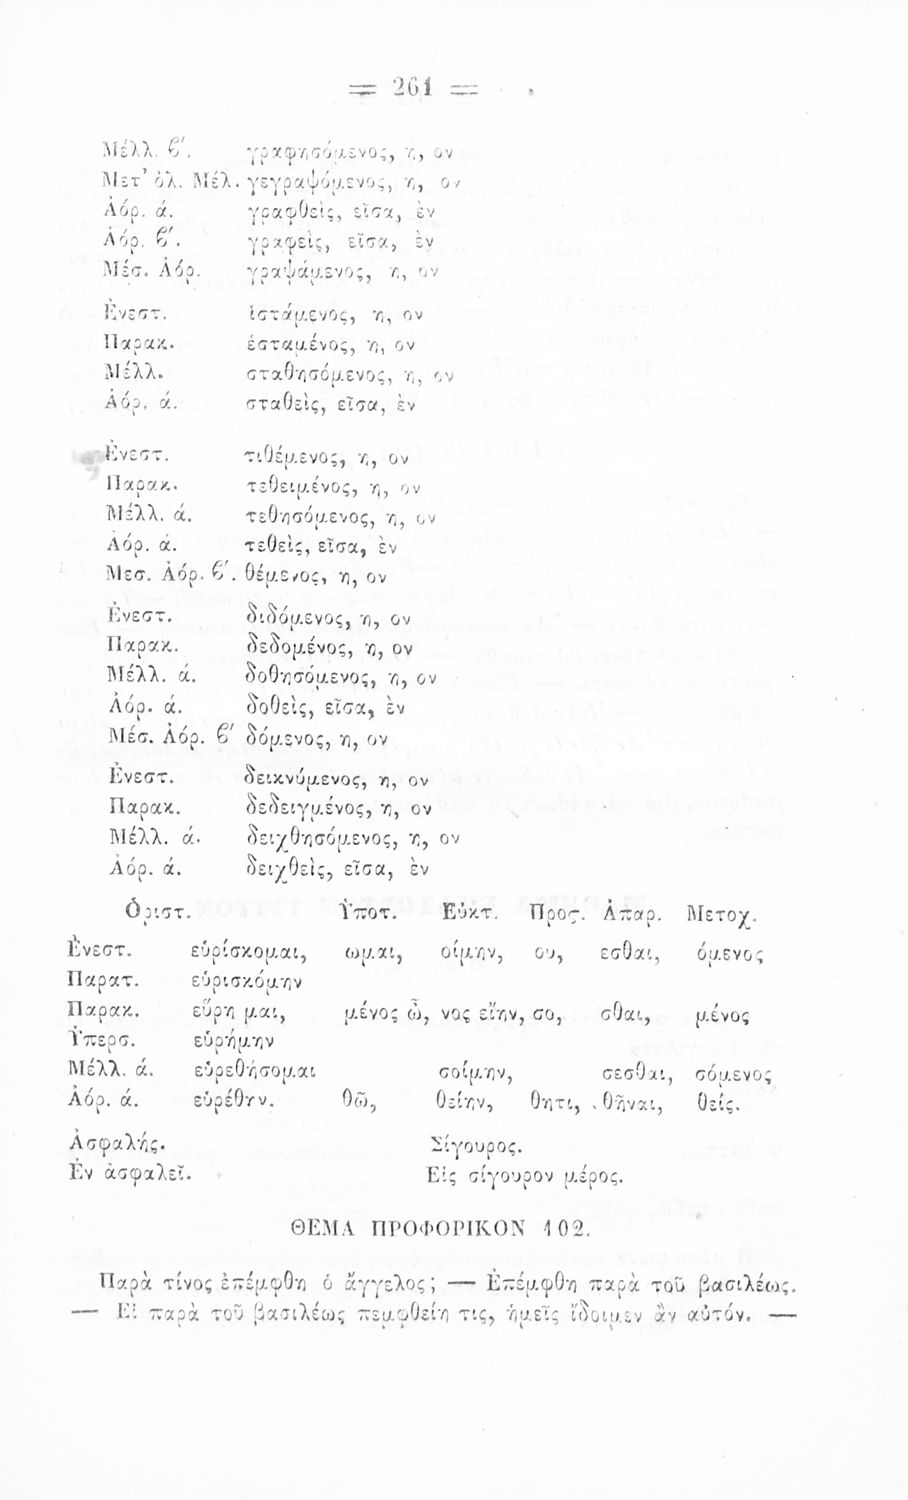 = 261 =
Μέλλ. ϐ΄. γραφησόμενος, η, ον
Μετ᾽ ὀλ. Μέλ. γεγραψόμενος, η, ον
Ἀόρ. ά. γραφθεὶς, εῖσα, ὲν
Ἀόρ. ϐ΄. γραφείς, εῖσα, ὲν
Μέσ. Ἀόρ. γραψάμενος, η, ον
Ἐνεστ. ἱστάμενος, η, ον
Παρακ. ἑσταμένος, η, ον
Μέλλ. σταθησόμενος, η, ον
Ἀόρ. ά. σταθεὶς, εῖσα, ὲν
Ἐνεστ. τιθέμενος, η, ον
Παρακ. τεθειμένος, η, ον
Μέλλ. ά. τεθησόμενος, η, ον
Ἀόρ. ά. τεθεὶς, εῖσα, ὲν
Μεσ. Ἀόρ. ϐ΄. θέμενος, η, ον
Ἐνεστ. διδόμενος, η, ον
Παρακ. δεδομένος, η, ον
Μέλλ. ά. δοθησόμενος, η, ον
Ἀόρ. ά. δοθεὶς, εῖσα, ὲν
Μέσ. Ἀόρ. ϐ΄ δόμενος, η, ον
Ἐνεστ. δεικνύμενος, η, ον
Παρακ. δεδειγμένος, η, ον
Μέλλ. ά. δειχθησόμενος, η, ον
Ἀόρ. ά. δειχθεὶς, εῖσα, ὲν
Ὁριστ. Ὑποτ. Εὐκτ. Προς. Ἀπαρ. Μετοχ.
Ἐνεστ. εὑρίσκομαι, ωμαι, οίμην, ου, εσθαι, όμενος
Παρατ. εὑρισκόμην
Παρακ. εὕρημαι, μένος ὦ, νος εἴην, σο, σθαι, μένος
Ὑπερσ. εὑρήμην
Μέλλ. ά. εὑρεθήσομαι σοίμην, σεσθαι, σόμενος
Ἀόρ. ά. εὑρέθην. θῶ, θείην, θητι, θῆναι, θείς.
Ἀσφαλής. Σίγουρος.
Ἐν ἀσφαλεῖ. Εἰς σίγουρον μέρος.
ΘΕΜΑ ΠΡΟΦΟΡΙΚΟΝ 102.
Παρὰ τίνος ἐπέμφθη ὁ ἄγγελος; — Ἐπέμφθη παρὰ τοῦ βασιλέως.
— Εἰ παρὰ τοῦ βασιλέως πεμφθείη τις, ἡμεῖς ἴδοιμεν ἂν αὐτόν. —